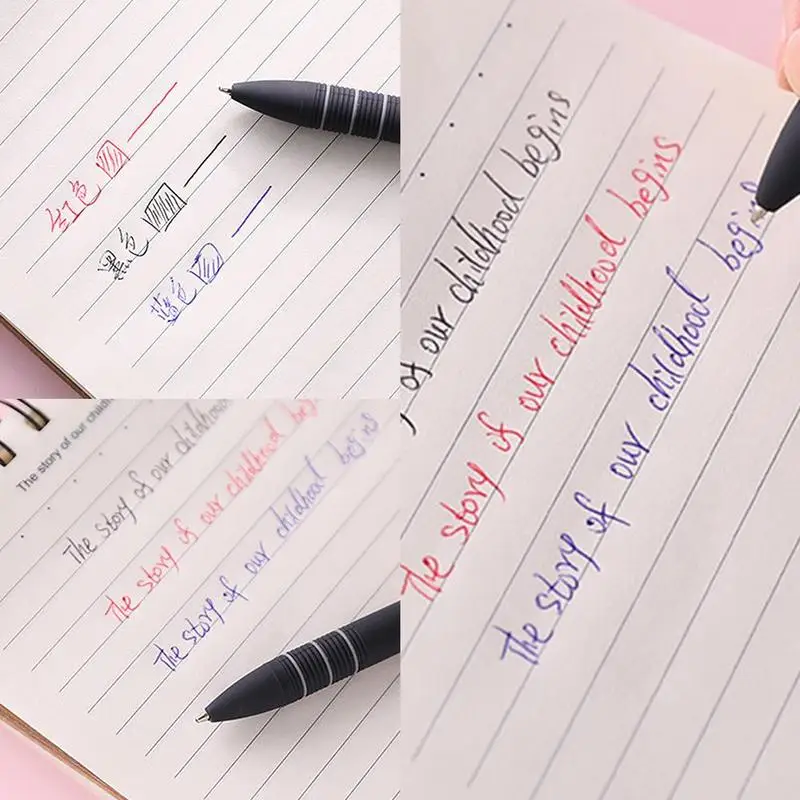 红色
黑色
蓝色
of our childhood begins
The story of our childhood begins
The story of our childhood begin
The story of our child
The story of our childhood
The story of our childhood beg
The story of our childhood begins